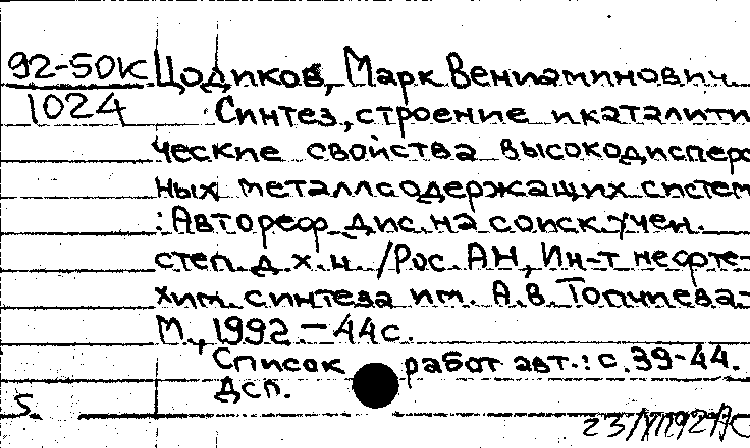 92-50К Цодиков, Марк Вениаминович
1024 Синтез, строение и каталити
ческие свойства высокодисперс
ных металлсодержащих систем
: Автореф. дис. на соиск. учен.
степ. д. х. н. / Рос. АН, Ин-т нефте-
хим. синтеза им. А. В. Топчиева-
М., 1992. - 44 с.
Список работ авт.: с. 39-44.
Дсп.
5.